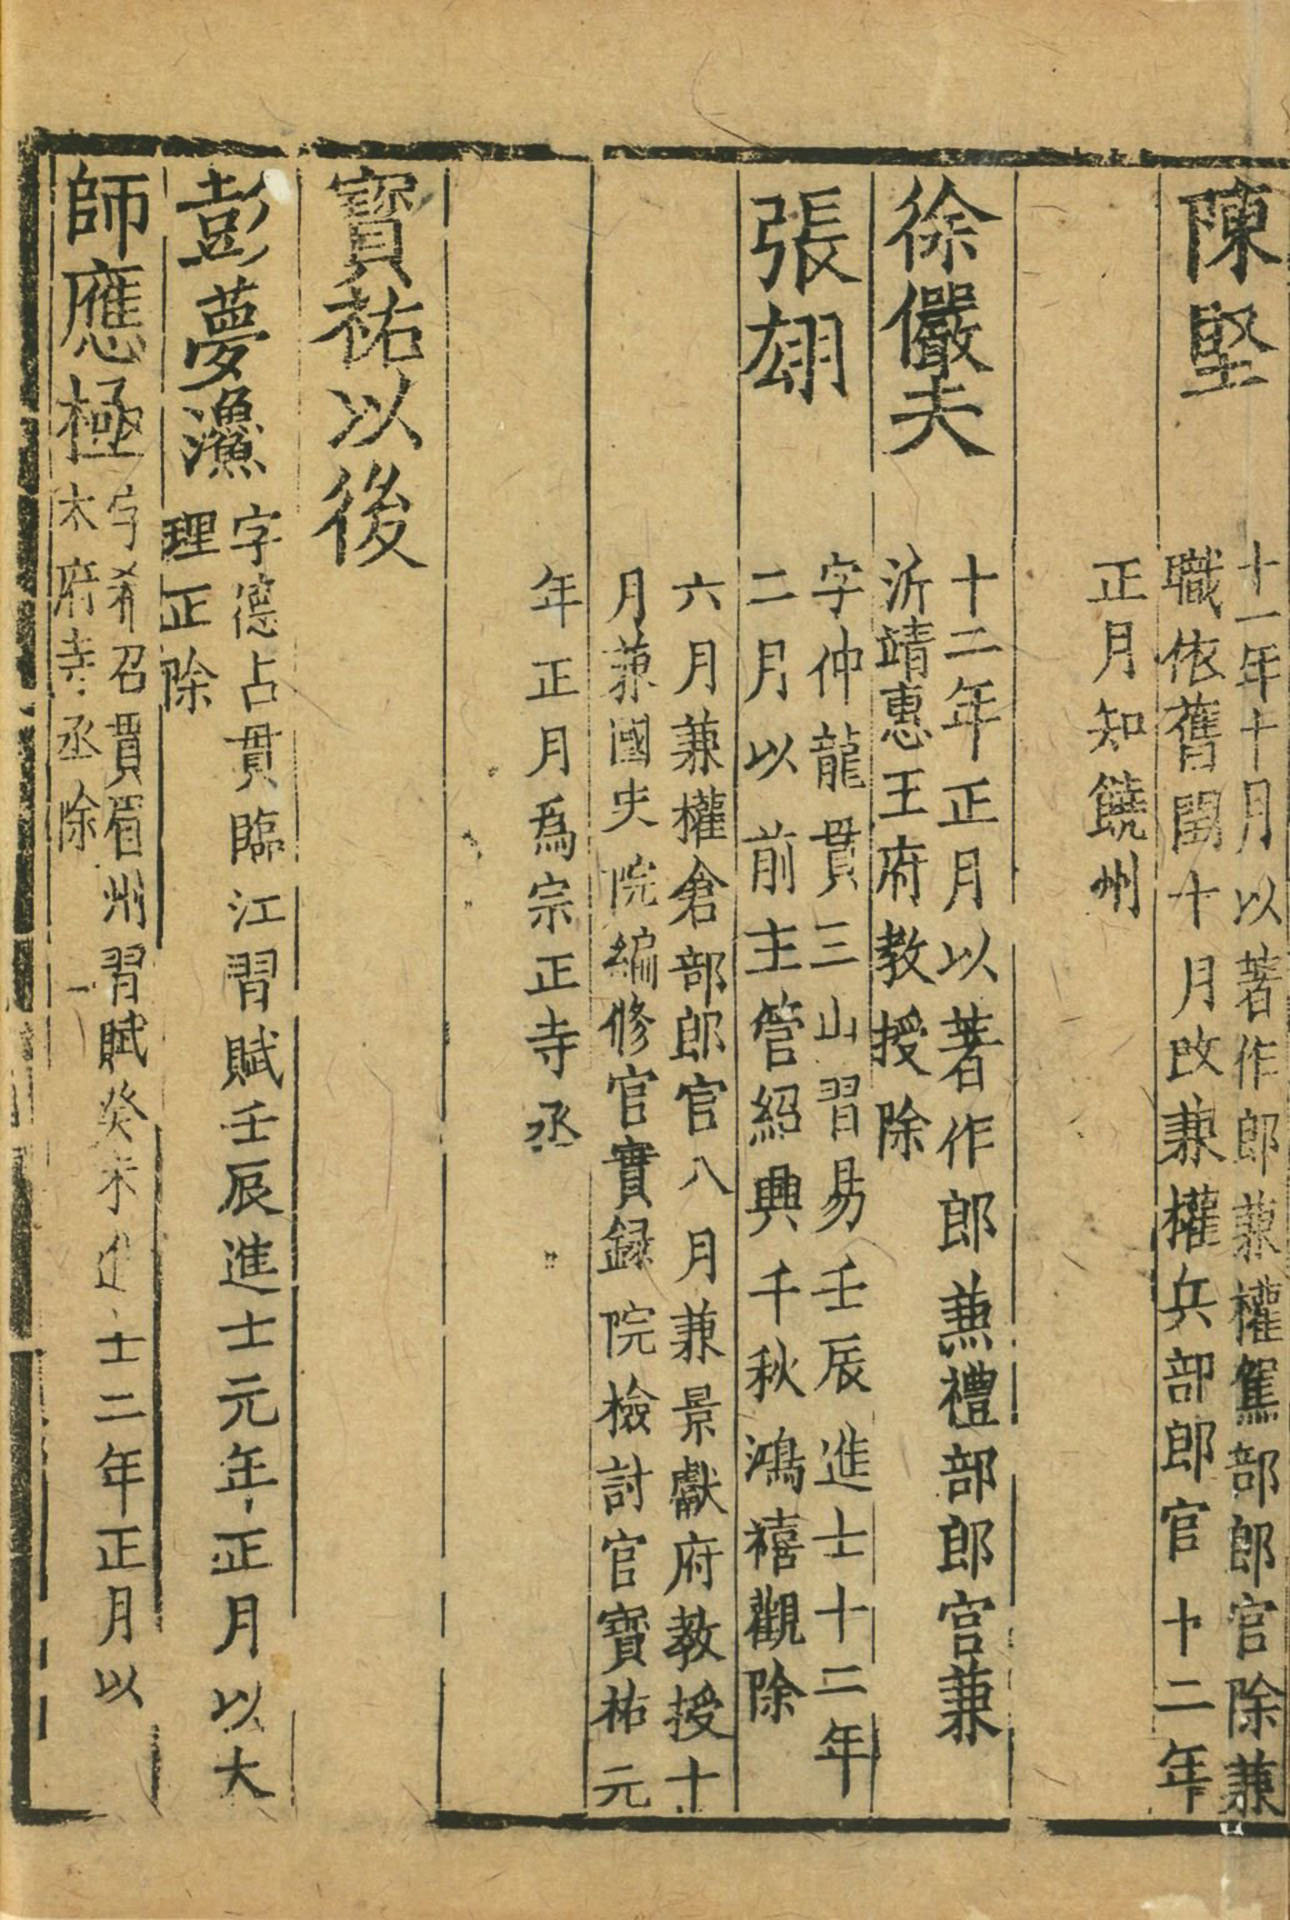 陳堅
十一年十月以著作郎兼權駕部郎官除兼
職依舊閏十月改兼權兵部郎官十二年
正月知饒州
徐儼夫
十二年正月以著作郎兼禮部郎官兼
沂靖惠王府教授除
張翃
字仲龍貫三山習易壬辰進士十二年
二月以前主管紹興千秋鴻禧觀除
六月兼權倉部郎官八月兼景獻府教授十
月兼國史院編修官實録院檢討官寶祐元
年正月爲宗正寺丞
寶祐以後
彭夢瀺
字德占貫臨江習賦壬辰進士元年正月以大
理正除
師應極
字希召貫眉州習賦癸未進士二年正月以
太府寺丞除